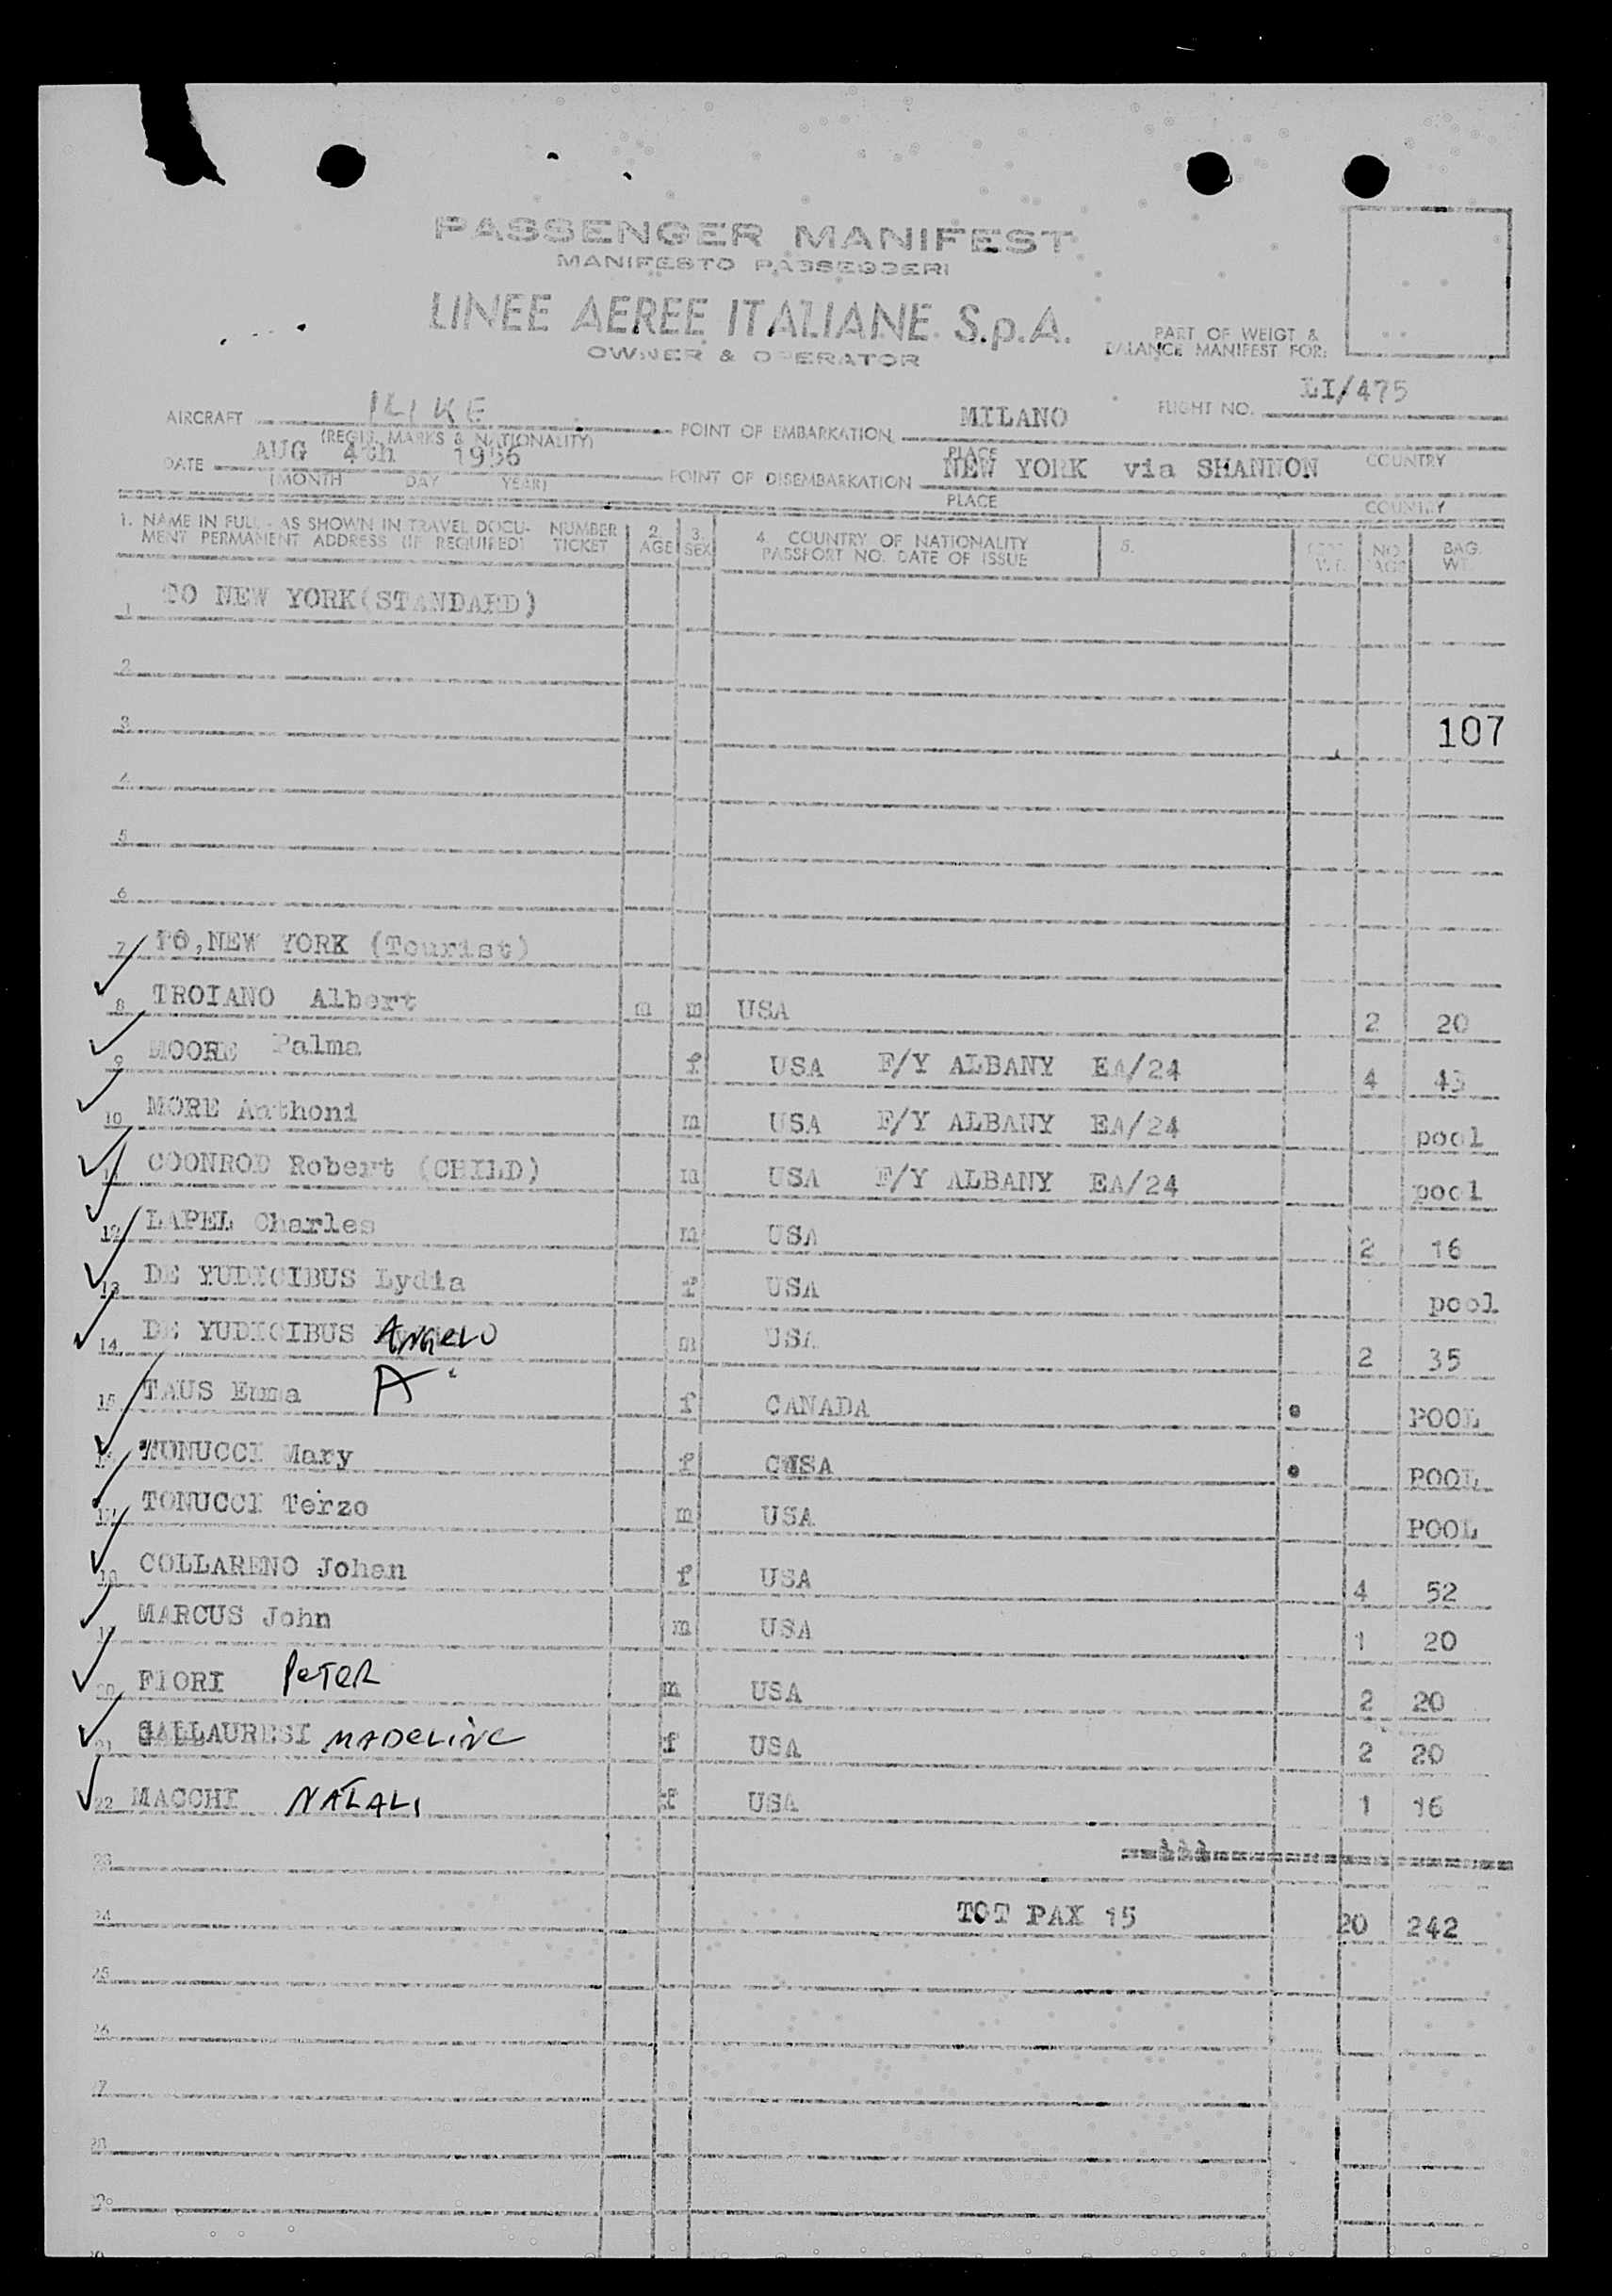 PASSENGER MANIFEST
MANIFESTO PASSEGGERI
LINEE AEREE ITALIANE S.p.A.
OWNER & OPERATOR
PART OF WEIGT &
BALANCE MANIFEST FOR:
AIRCRAFT ILIKE
(REGIS. MARKS & NATIONALITY)
POINT OF EMBARKATION MILANO
PLACE COUNTRY
FLIGHT NO. LI/475
DATE AUG 4th 1956
(MONTH DAY YEAR)
POINT OF DISEMBARKATION NEW YORK via SHANNON
PLACE COUNTRY
1. NAME IN FULL - AS SHOWN IN TRAVEL DOCU- NUMBER 2. 3. 4. COUNTRY OF NATIONALITY 5. NO BAG.
MENT PERMANENT ADDRESS (IF REQUIRED) TICKET AGE SEX PASSPORT NO. DATE OF ISSUE WT.
1 TO NEW YORK(STANDARD)
2
3 107
4
5
6
7 TO,NEW YORK (Tourist)
8 TROIANO Albert m m USA 2 20
9 MOORE Palma f USA F/Y ALBANY EA/24 4 43
10 MORE Anthoni m USA F/Y ALBANY EA/24 pool
11 COONROD Robert (CHILD) m USA F/Y ALBANY EA/24 pool
12 LAPEL Charles m USA 2 16
13 DE YUDICIBUS Lydia f USA pool
14 DE YUDICIBUS ANGELO m USA 2 35
15 TAUS Emma A f CANADA POOL
16 TONUCCI Mary f USA POOL
17 TONUCCI Terzo m USA POOL
18 COLLARENO Johan f USA 4 52
19 MARCUS John m USA 1 20
20 FIORI PeTeR m USA 2 20
21 GALLAURESI MADeLiNe f USA 2 20
22 MACCHI NATALI f USA 1 16
23
24 TOT PAX 15 20 242
25
26
27
28
29